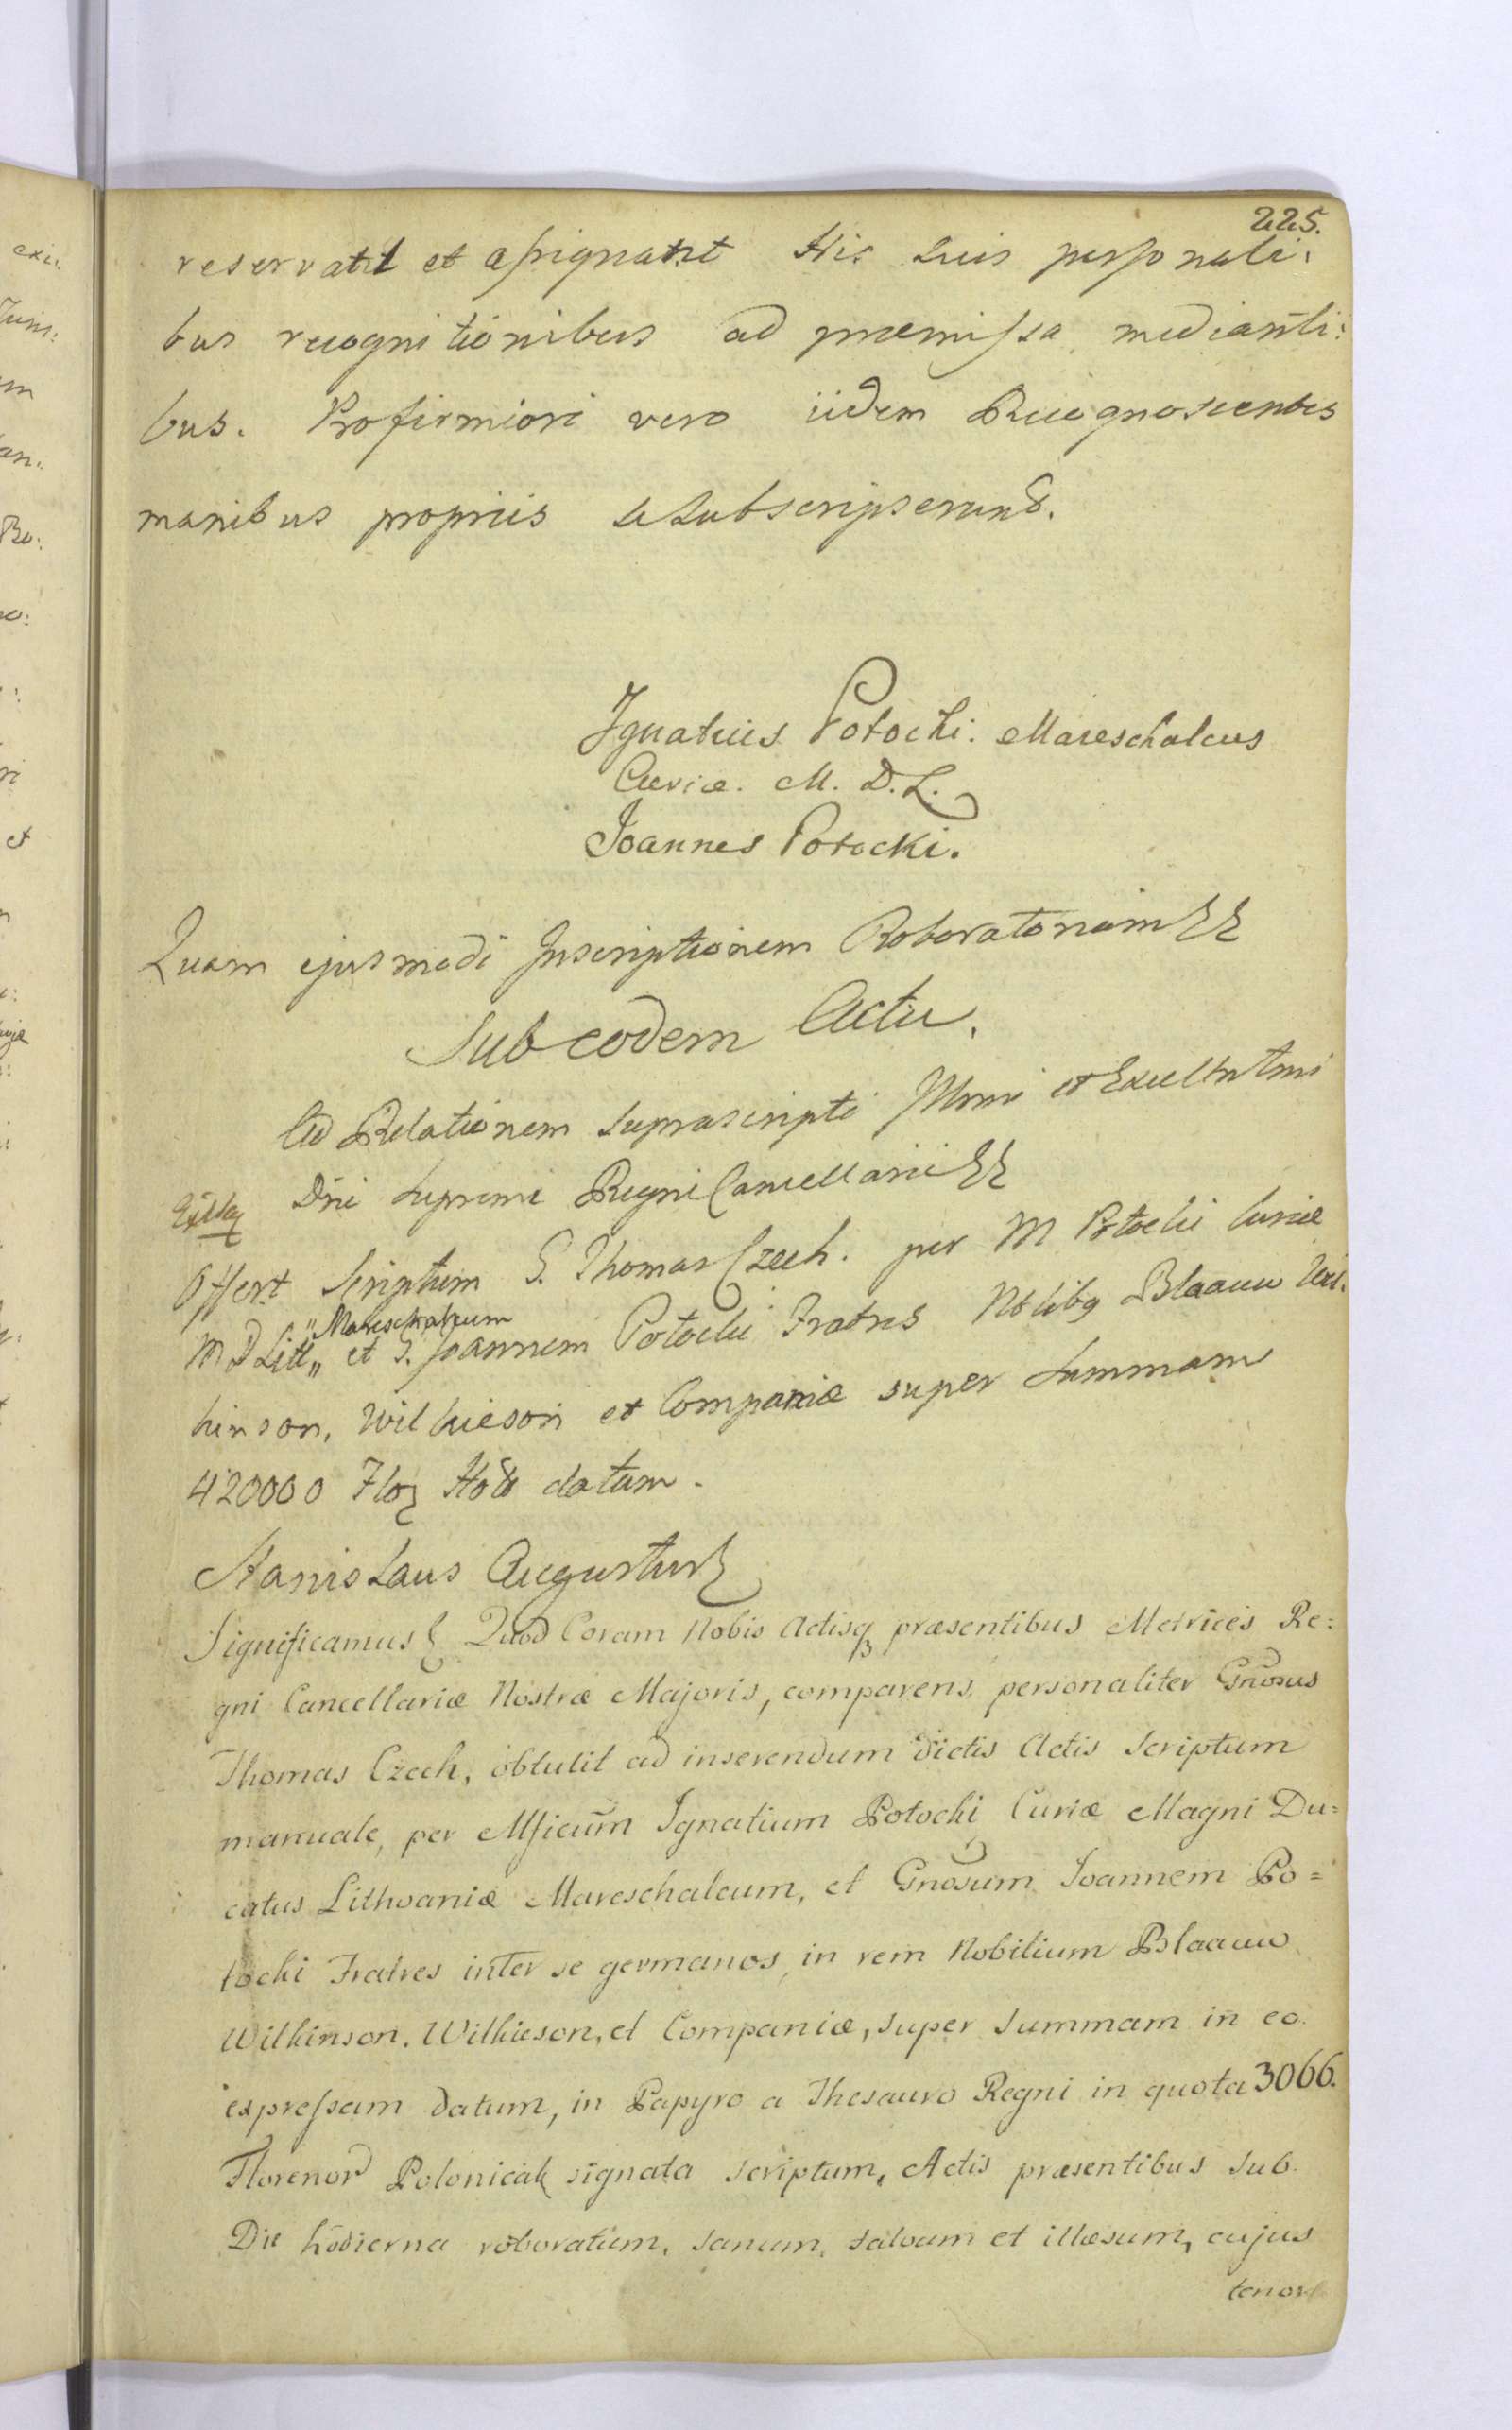 225.
reservatt et assignatt His suis personali:
bus recognitionibus ad præmissa medianti:
bus. Pro firmiori vero iidem Recognoscentes
manibus propriis se subscripserunt.
Ignatius Potocki. Mareschalcus
Curiæ. M. D. L.
Joannes Potocki.
Quam ejusmodi Inscriptionem Roboratoriam
Sub eodem Actu.
Ad Relationem suprascripti Illmi et Excellntmi
Dni Supremi Regni Cancellarii
Offert Scriptum G. Thomas Czech. per M Potocki Curiæ
M D Litt „ Mareschalcum „ et G. Joannem Potocki Fratres Nobilibq Blaauw Wil.
kinson, Wilkieson et Companiæ super Summam
420000 Flor Holl datum.
Stanislaus Augustus
Significamus Quod Coram Nobis Actisq præsentibus Metrices Re=
gni Cancellariæ Nostræ Majoris, comparens personaliter Gnosus
Thomas Czech, obtulit ad inserendum dictis Actis Scriptum
manuale, per Mficum Ignatium Potocki Curiæ Magni Du=
catus Lithvaniæ Mareschalcum, et Gnosum Joannem Po=
tocki Fratres inter se germanos, in rem Nobilium Blaauw
Wilkinson. Wilkieson, et Companiæ, super Summam in eo
expressam datum, in Papyro a Thesauro Regni in quota 3066.
Florenor Polonical signata scriptum, Actis præsentibus sub
Die hodierna roboratum, sanum, salvum et illæsum, cujus
tenor